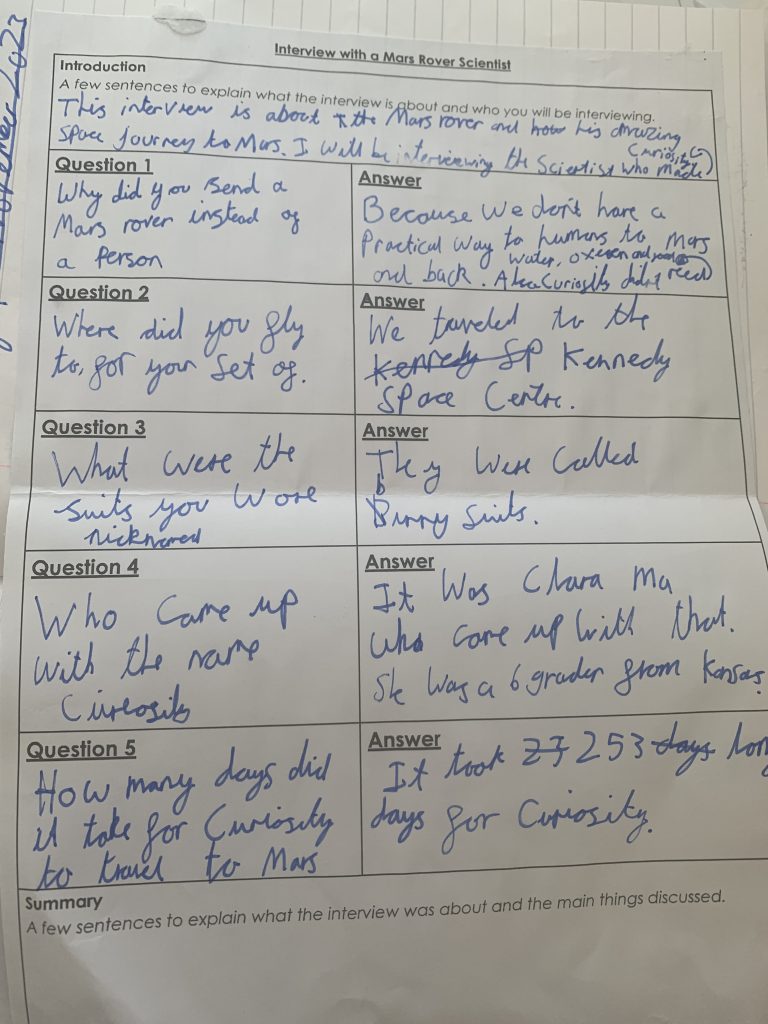 Interview with a Mars Rover Scientist
Introduction
A few sentences to explain what the interview is about and who you will be interviewing.
This interview is about the Mars rover and how his amazing
space journey to Mars. I will be interviewing the Scientist who made
Curiosity
Question 1
Why did you send a
Mars rover instead of
a Person
Answer
Because we don't have a
Practical way to humans to Mars
and back. Also Curiosity didn't need
water, oxegen and food
Question 2
Where did you fly
to, for your set of.
Answer
We traveled to the
Kennedy SP Kennedy
SPace Centre.
Question 3
What were the
suits you wore
nicknamed
Answer
They were called
Bunny Suits.
Question 4
Who came up
with the name
Cureosity
Answer
It was Clara Ma
who came up with that.
She was a 6 grader from Kansas.
Question 5
How many days did
it take for Curiosity
to travel to Mars
Answer
It took 253 days lon
days for Curiosity.
Summary
A few sentences to explain what the interview was about and the main things discussed.